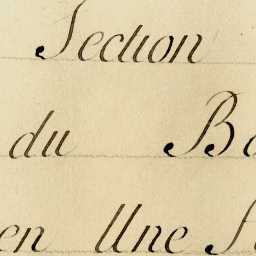 Section
du
en Une